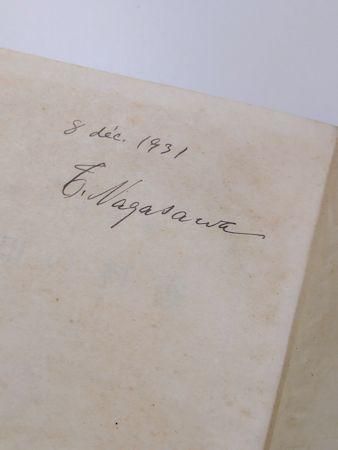 8 déc. 1931
T. Nagasawa